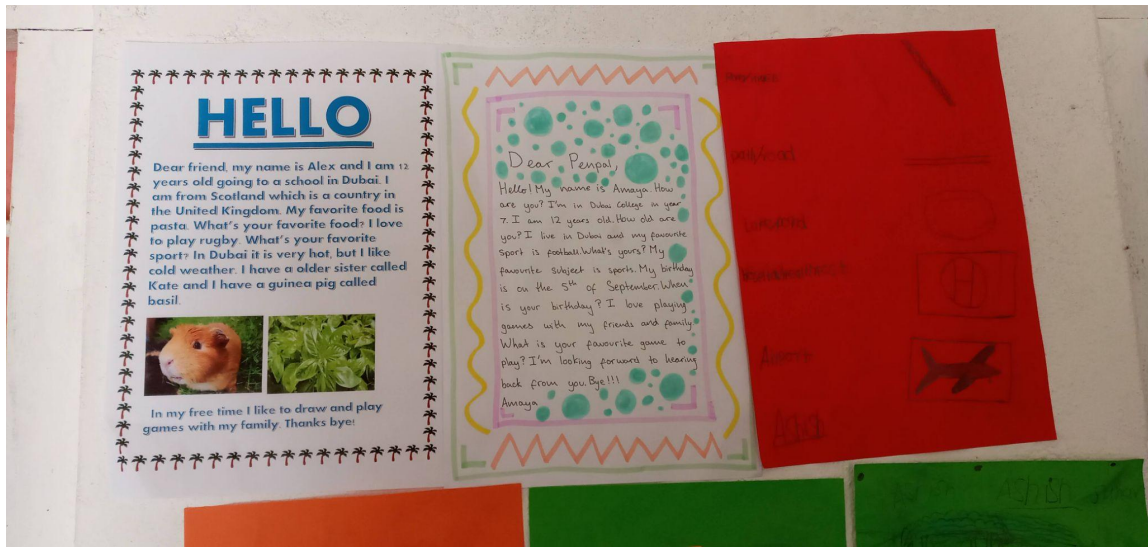 HELLO
Dear friend, my name is Alex and I am 12
years old going to a school in Dubai. I
am from Scotland which is a country in
the United Kingdom. My favorite food is
pasta. What's your favorite food? I love
to play rugby. What's your favorite
sport? In Dubai it is very hot, but I like
cold weather. I have a older sister called
Kate and I have a guinea pig called
basil.
In my free time I like to draw and play
games with my family. Thanks bye!
Dear Penpal,
Hello! My name is Amaya. How
are you? I'm in Dubai College in year
7. I am 12 years old. How old are
you? I live in Dubai and my favourite
sport is football. What's yours? My
favourite subject is sports. My birthday
is on the 5th of September. When
is your birthday? I love playing
games with my friends and family.
What is your favourite game to
play? I'm looking forward to hearing
back from you. Bye!!!
Amaya
H
Airport
Ashish
Ashish